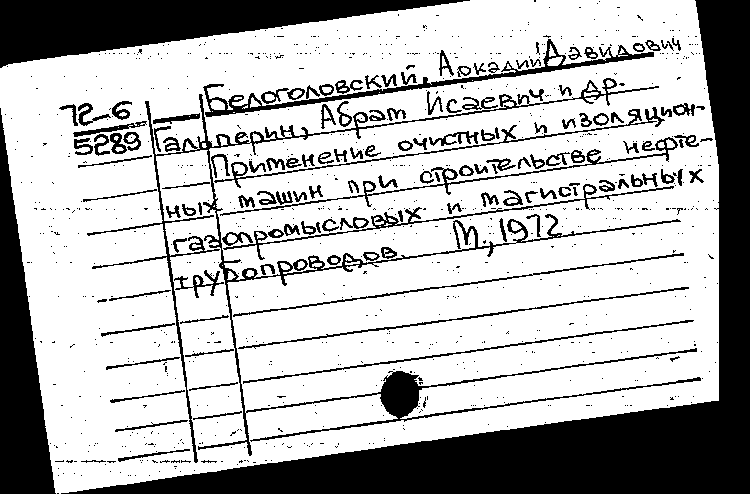 Белоголовский, Аркадий Давидович
72-6
5289
Гальперин, Абрам Исаевич и др.
Применение очистных и изоляцион-
ных машин при строительстве нефте-
газопромысловых и магистральных
трубопроводов. М., 1972.